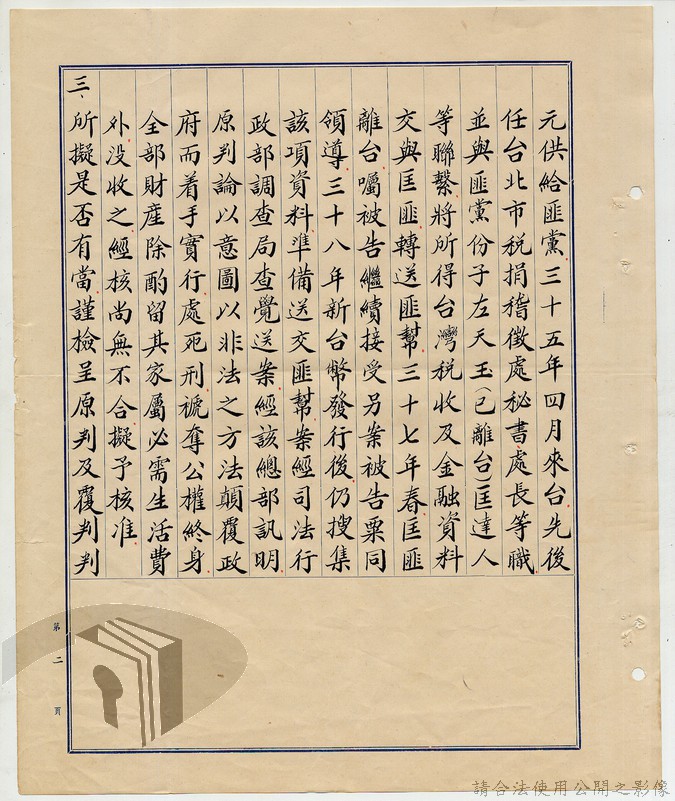 元供給匪黨三十五年四月來台先後
任台北市稅捐稽徵處秘書處長等職
並與匪黨份子左天玉(已離台)匡達人
等聯繫將所得台灣稅收及金融資料
交與匡匪轉送匪幫三十七年春匡匪
離台囑被告繼續接受另案被告粟同
領導三十八年新台幣發行後仍搜集
該項資料準備送交匪幫案經司法行
政部調查局查覺送案經該總部訊明
原判論以意圖以非法之方法顛覆政
府而着手實行處死刑褫奪公權終身
全部財產除酌留其家屬必需生活費
外没收之經核尚無不合擬予核准
三、所擬是否有當謹檢呈原判及覆判判
第二頁
請合法使用公開之影像